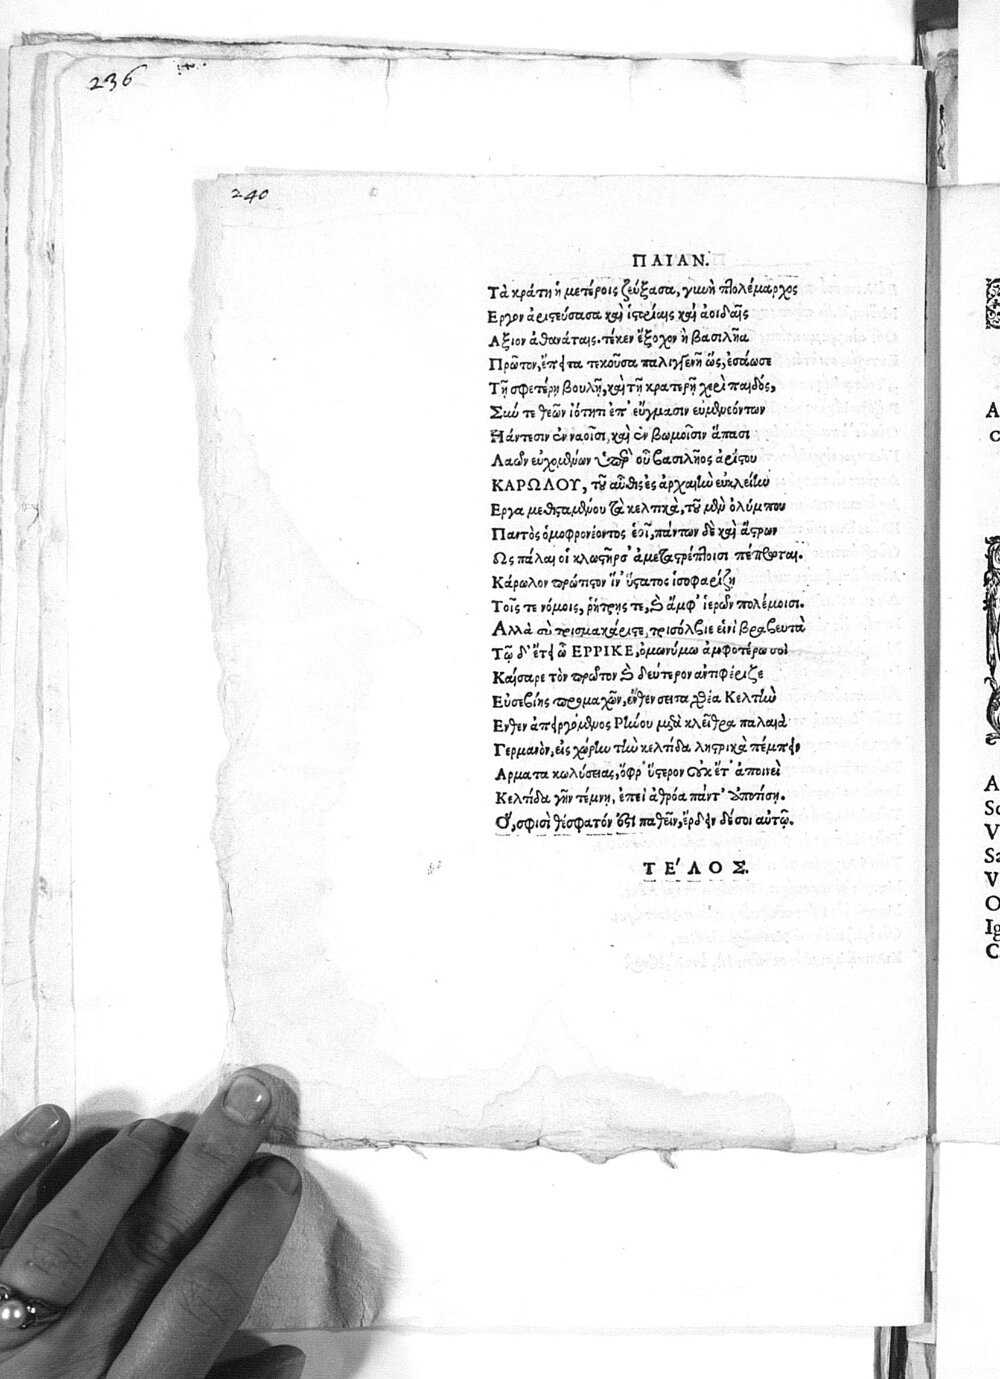 236
240
ΠΑΙΑΝ.
Τὰ κράτη ἡμετέροις ζεύξασα, γυνὴ πολέμαρχος
Εργον ἀριστεύσασα καὶ ἱστρίαις καὶ ἀοιδαῖς
Αξιον ἀθανάταις. τέκεν ἔξοχον ἣ βασιλῆα
Πρῶτον, ἔπειτα τεκοῦσα παλιγγενῆ ὣς, ἐσάωσε
Τῇ σφετέρῃ βουλῇ, καὶ τῇ κρατερῇ χερὶ παιδός,
Σκύ τε θεῶν ἰότητι ἐπ' εὔγμασιν εὐμενεόντων
Ηάντεσιν ἐν ναοῖσι, καὶ ἐν βωμοῖσιν ἅπασι
Λαῶν εὐχομένων ὑπὲρ οὗ βασιλῆος ἀρίστου
ΚΑΡΩΛΟΥ, τοῦ αὖθις ἐς ἀρχαίην εὐκλείην
Εργα μεθισταμένου τὰ κελτικὰ, τοῦ μὲν ὀλύμπου
Παντὸς ὁμοφρονέοντος ἑοῖ, πάντων δὲ καὶ ἄστρων
Ως πάλαι οἱ κλωστῆρσ' ἀμετατρέπτοισι πέπρωται.
Κάρωλον πρώτιστον ἵν' ὕστατος ἰσοφαρίζῃ
Τοῖς τε νόμοις, ῥήτρῃς τε, καὶ ἄμφ' ἱερῶν πολέμοισι.
Αλλὰ σὺ τρισμακάριστε, τρισόλβιε εἰνὶ βραβευτὰ
Τῷ δ' ἔτι ὦ ΕΡΡΙΚΕ, ὁμωνύμω ἀμφοτέρω σοὶ
Καίσαρε τὸν πρῶτον καὶ δεύτερον ἀντιφέριζε
Εὐσεβίης προμαχῶν, ἔνθεν σειτα ῥέα Κελτικὼ
Ενθεν ἀπειργόμενος Ρήνου μετὰ κλεῖθρα παλαιὰ
Γερμανὸν, εἰς χώρην τὴν κελτίδα ληστρικὰ πέμπειν
Αρματα κωλύσειας, ὄφρ' ὕστερον οὐκ ἔτ' ἀποινεὶ
Κελτίδα γῆν τέμνῃ, ἐπεὶ ἀθρόα πάντ' ἀποτήσῃ.
Ο', σφισὶ θέσφατόν ἐστι παθεῖν, ἔρδειν δέ σοι αὐτῷ.
ΤΕ'ΛΟΣ.
A
V
V
O